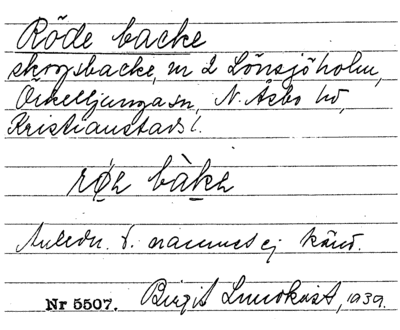 Röde backe
skogsbacke, m 2 Lönsjöholm,
Örkelljunga sn, N. Åsbo hd,
Kristianstads l.
röe bàke
Anledn. t. namnet ej känd.
Nr 5507. Birgit Lundkvist, 1939.